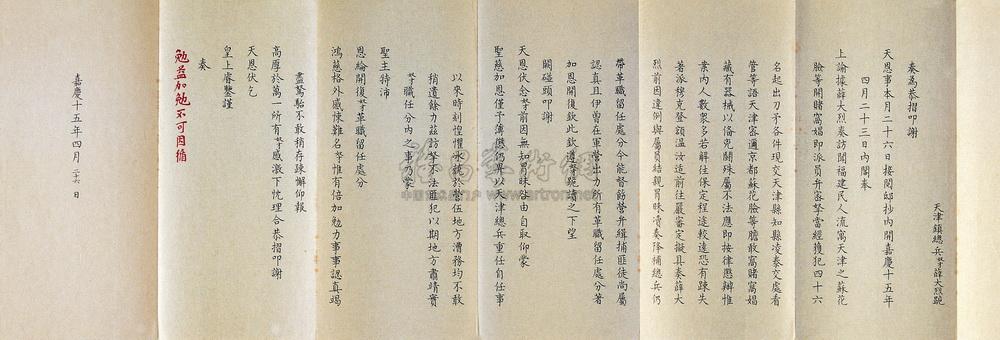 天津鎮總兵奴才薛大烈跪
奏為恭摺叩謝
天恩事本月二十六日接閱邸抄內開嘉慶十五年
四月二十三日內閣奉
上諭據薛大烈奏訪聞福建民人流寓天津之蘇花
臉等開賭窩娼即派員弁審拏當經獲犯四十六
名起出刀矛各件現交天津縣知縣凌泰交處看
管等語天津密邇京都蘇花臉等膽敢窩賭窩娼
藏有器械以俻兇鬭殊屬不法應即按律懲辦惟
案內人數衆多若解往保定程途較遠恐有踈失
著派穆克登額温汝适前往嚴審定擬具奏薛大
烈前因違例與屬員結親冒昧瀆奏降補總兵仍
帶革職留任處分今能督飭營弁緝捕匪徒尚屬
認真且伊曾在軍營出力所有革職留任處分著
加恩開復欽此欽遵奴才跪讀之下望
闕碰頭叩謝
天恩伏念奴才前因無知冒昧咎由自取仰蒙
聖慈加恩僅予薄懲仍畀以天津總兵重任自任事
以來時刻惶懼永兢於營伍地方漕務均不敢
稍遺餘力茲訪拏不法匪犯以期地方肅靖實
奴才職任分內之事乃蒙
聖主特沛
恩綸開復奴才革職留任處分
鴻慈格外感悚難名奴才惟有倍加勉力事事認真竭
盡駑駘不敢稍存踈懈仰報
高厚於萬一所有奴才感激下忱理合恭摺叩謝
天恩伏乞
皇上睿鑒謹
奏
勉益加勉不可因循
嘉慶十五年四月二十六日